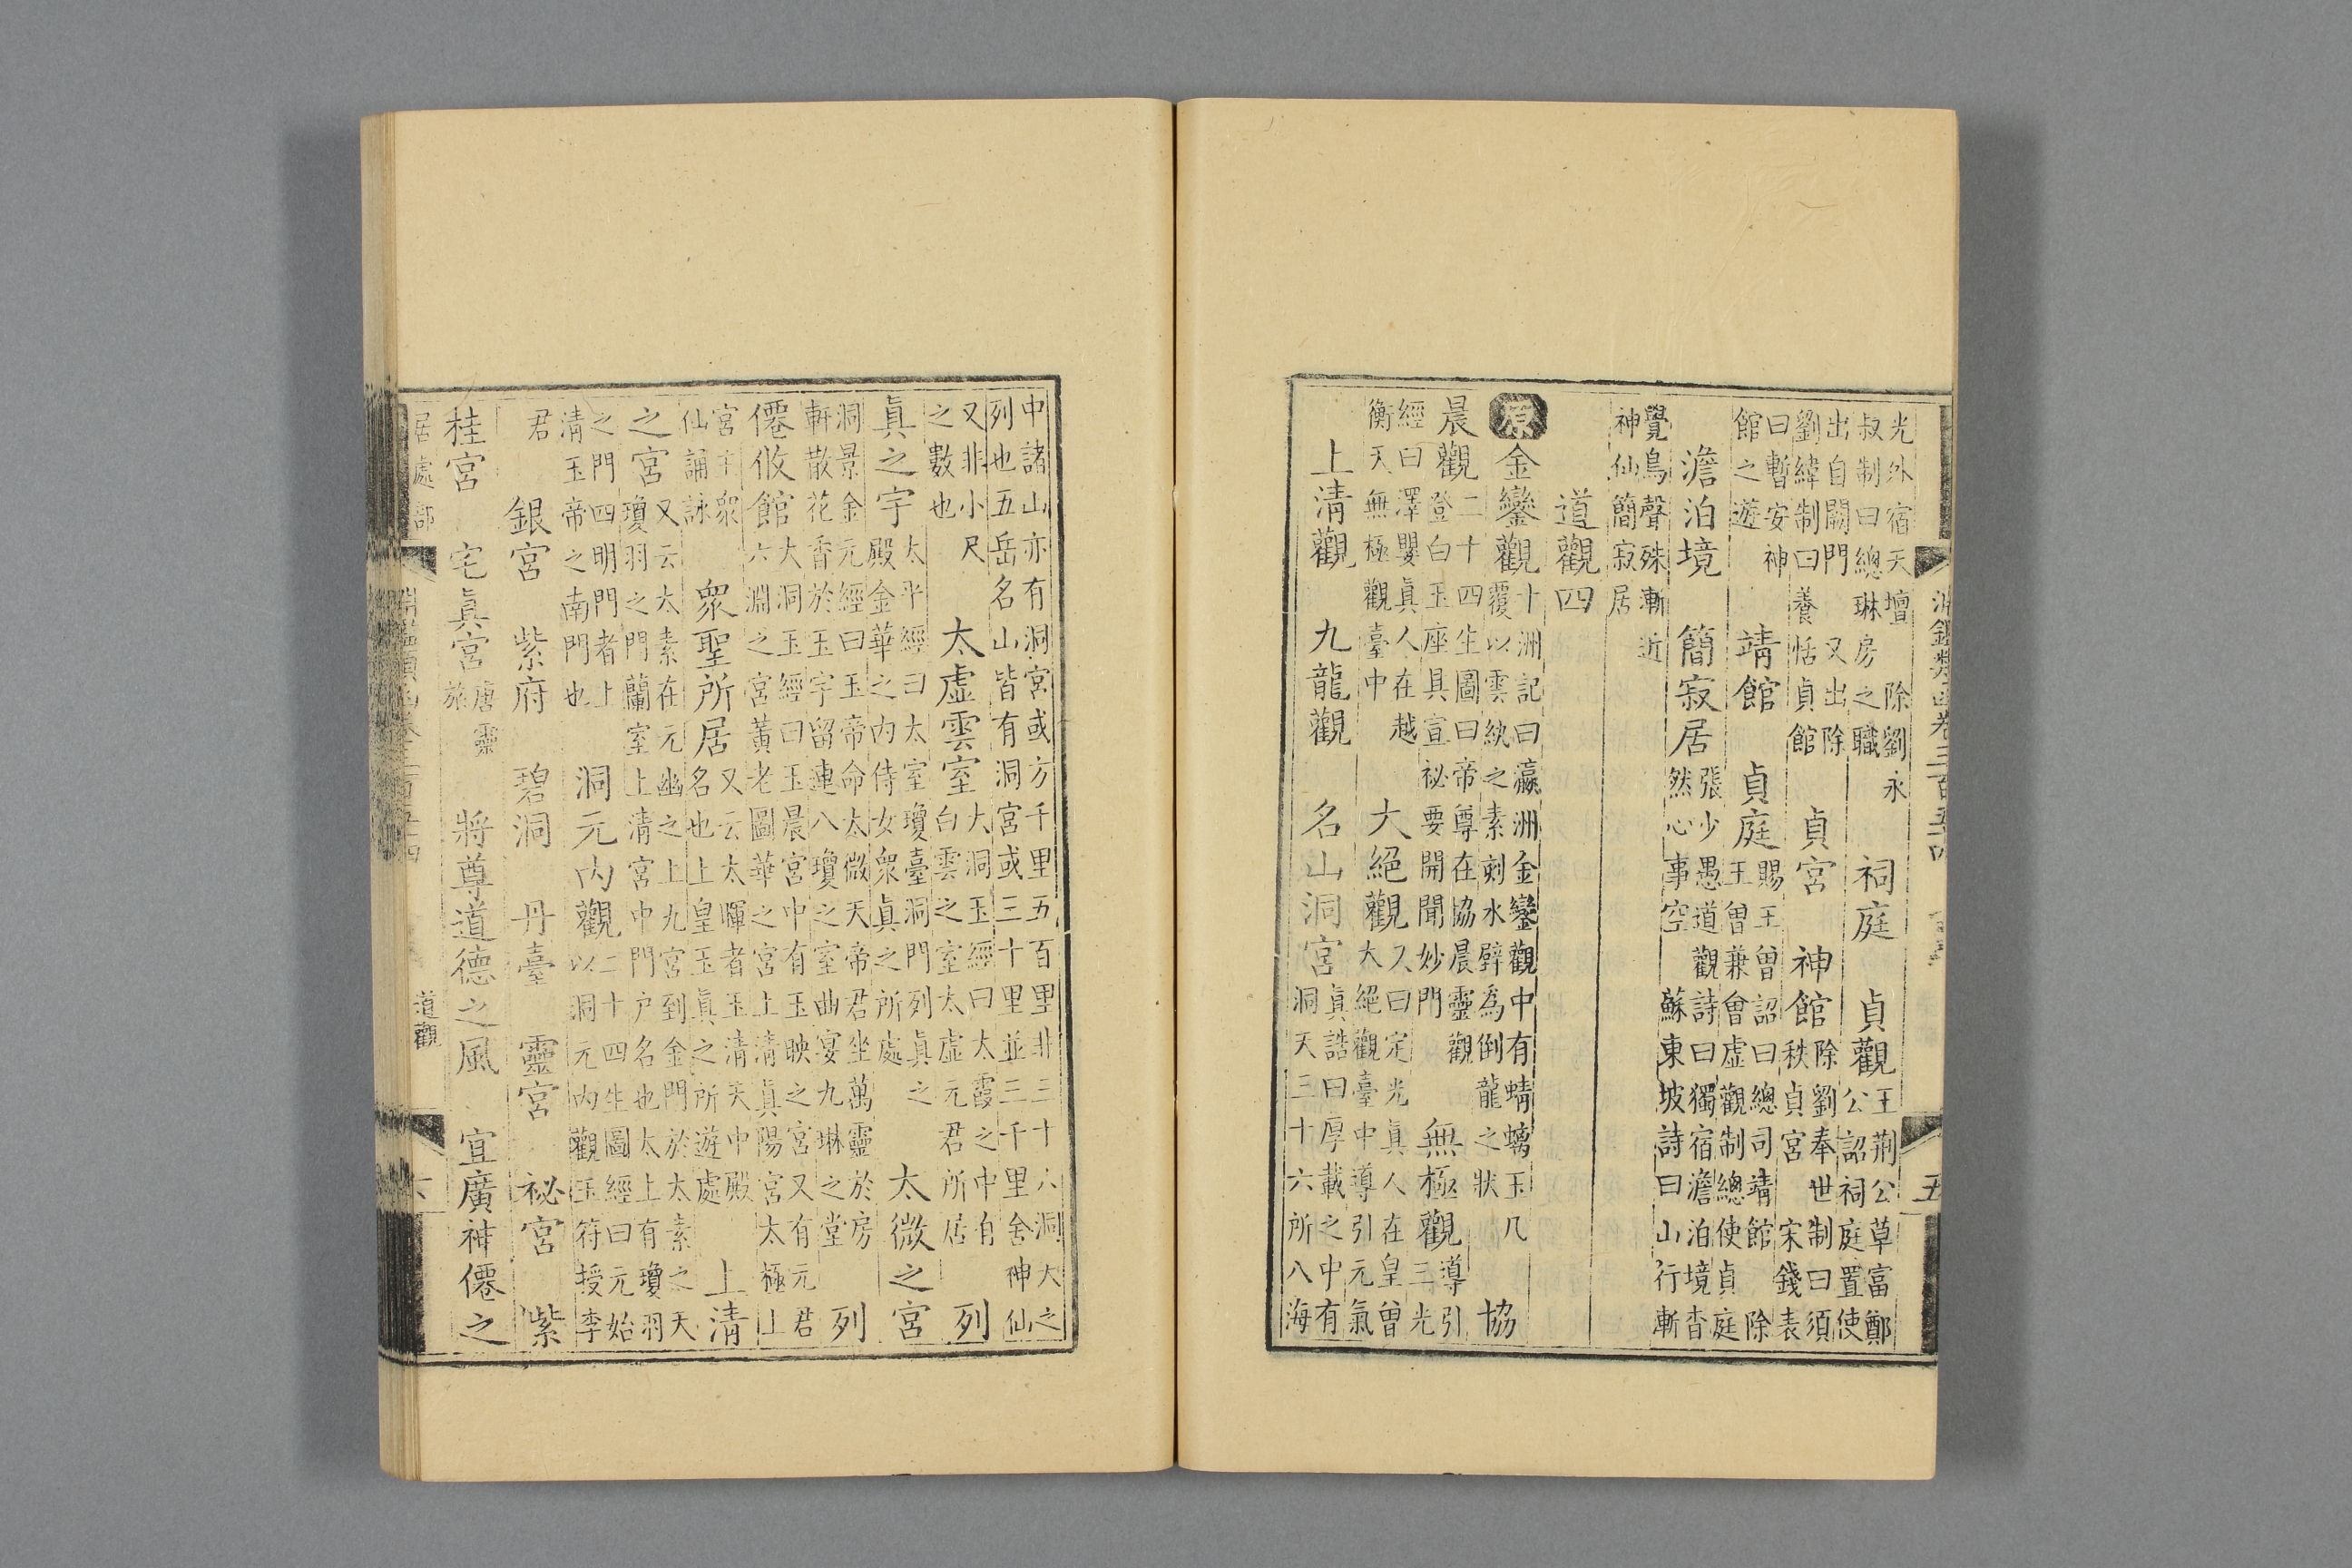 光外宿天壇　除劉永
叔制曰總琳房之職
祠庭　貞觀
王荆公草富鄭
公詔祠庭置使
出自闕門　又出除
劉緯制曰養恬貞館
貞宮　神館
除劉奉世制曰須
秩貞宮　宋錢表
曰暫安神
館之遊
靖館　貞庭
賜王曾詔曰總司靖館　除
王曾兼會虛觀制總使貞庭
澹泊境　簡寂居
張少愚道觀詩曰獨宿澹泊境杳
然心事空　蘇東坡詩曰山行漸
覺鳥聲殊漸近
神仙簡寂居
道觀四
原金鑾觀
十洲記曰瀛洲金鑾觀中有蜻螭玉几
覆以雲紈之素刻水碧為倒龍之狀
協
晨觀
二十四生圖曰帝尊在協晨靈觀
登白玉座具宣祕要開聞妙門
無極觀
導引
三光
經曰澤嬰真人在越
衡天無極觀臺中
大絕觀
又曰定光真人在皇曾
大絕觀臺中導引元氣
上清觀　九龍觀　名山洞宮
真誥曰厚載之中有
洞天三十六所八海
五
中諸山亦有洞宮或方千里五百里非三十六洞天之
列也五岳名山皆有洞宮或三十里並三千里舍神仙
又非小尺
之數也
太虛雲室
大洞玉經曰太霞之中有
白雲之室太虛元君所居
列
眞之宇
太平經曰太室瓊臺洞門列眞之
殿金華之内侍女衆眞之所處
太微之宮
洞景金元經曰玉帝命太微天帝君坐萬靈於房
軒散花香於玉宇留連八瓊之室曲宴九琳之堂
列
僊攸館
大洞玉經曰玉晨宮中有玉映之宮又有元君
六淵之宮黃老圖華之宮上清眞陽宮太極上
宮主衆
仙誦詠
衆聖所居
又云太暉者玉清天中殿
名也上皇玉眞之所遊處
上清
之宮
又云太素在元幽之上九宮到金門於太素之天
瓊羽之門蘭室上清宮中門户名也太上有瓊羽
之門四明門者上
清玉帝之南門也
洞元内觀
二十四生圖經曰元始
以洞元内觀玉符授李
君
銀宮　紫府　碧洞　丹臺　靈宮　祕宮　紫
桂宮　宅眞宮
唐靈
旅
將尊道德之風　宜廣神僊之
居處部
道觀
六